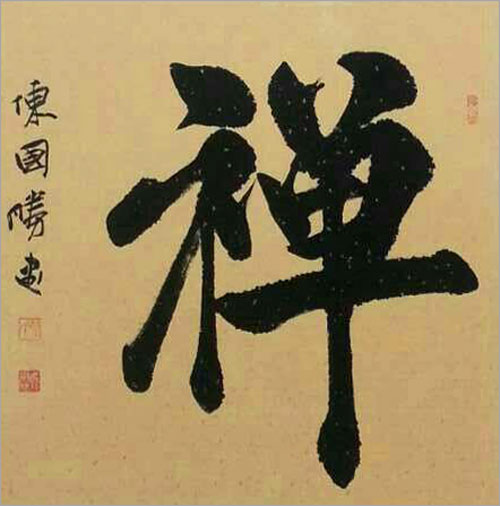 禅
陳國勝書